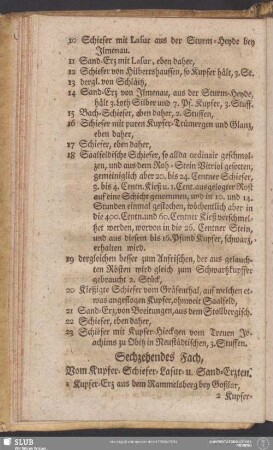 10 Schiefer mit Lasur aus der Sturm-Heyde bey
Jlmenau.
11 Sand-Ertz mit Lasur, eben daher,
12 Schiefer von Hilbertshaussen, so Kupfer hält, 3. St.
13 dergl. von Schlaitz,
14 Sand-Ertz von Jlmenau, aus der Sturm-Heyde,
hält 3. loth Silber und 7. Pf. Kupfer, 3. Stuff.
15 Bach-Schiefer, eben daher, 2. Stuffen,
16 Schiefer mit puren Kupfer-Trümergen und Glantz,
eben daher,
17 Schiefer, eben daher,
18 Saalfeldische Schiefer, so allda ordinair geschmol-
tzen, und aus dem Roh-Stein Vitriol gesotten,
gemeiniglich aber 20. bis 24. Centner Schiefer,
3. bis 4. Centn. Kieß u. 1. Cent. ausgelogter Rost
auf eine Schicht genommen, und in 10. und 14.
Stunden einmal gestochen, wöchentlich aber in
die 400. Centn. und 60. Centner Kieß verschmel-
tzet werden, worvon in die 26. Centner Stein,
und aus diesem bis 16. Pfund Kupfer, schwartz,
erhalten wird.
19 dergleichen besser zum Anfrischen, der aus gelauch-
ten Rösten wird gleich zum Schwartzkupffer
gebraucht 2. Stück,
20 Kießigte Schiefer vom Gräfenthal, auf welchen et-
was angeflogen Kupfer, ohnweit Saalfeld,
21 Sand-Ertz, von Breitungen, aus dem Stollbergisch.
22 Schiefer, eben daher,
23 Schiefer mit Kupfer-Hieckgen vom Treuen Jo-
achims zu Obitz in Neustädtischen, 3. Stuffen.
Sechzehendes Fach,
Vom Kupfer-Schiefer-Lasur- u. Sand-Ertzten.
1 Kupfer-Ertz aus dem Rammelsberg bey Goßlar,
2 Kupfer-
SLUB